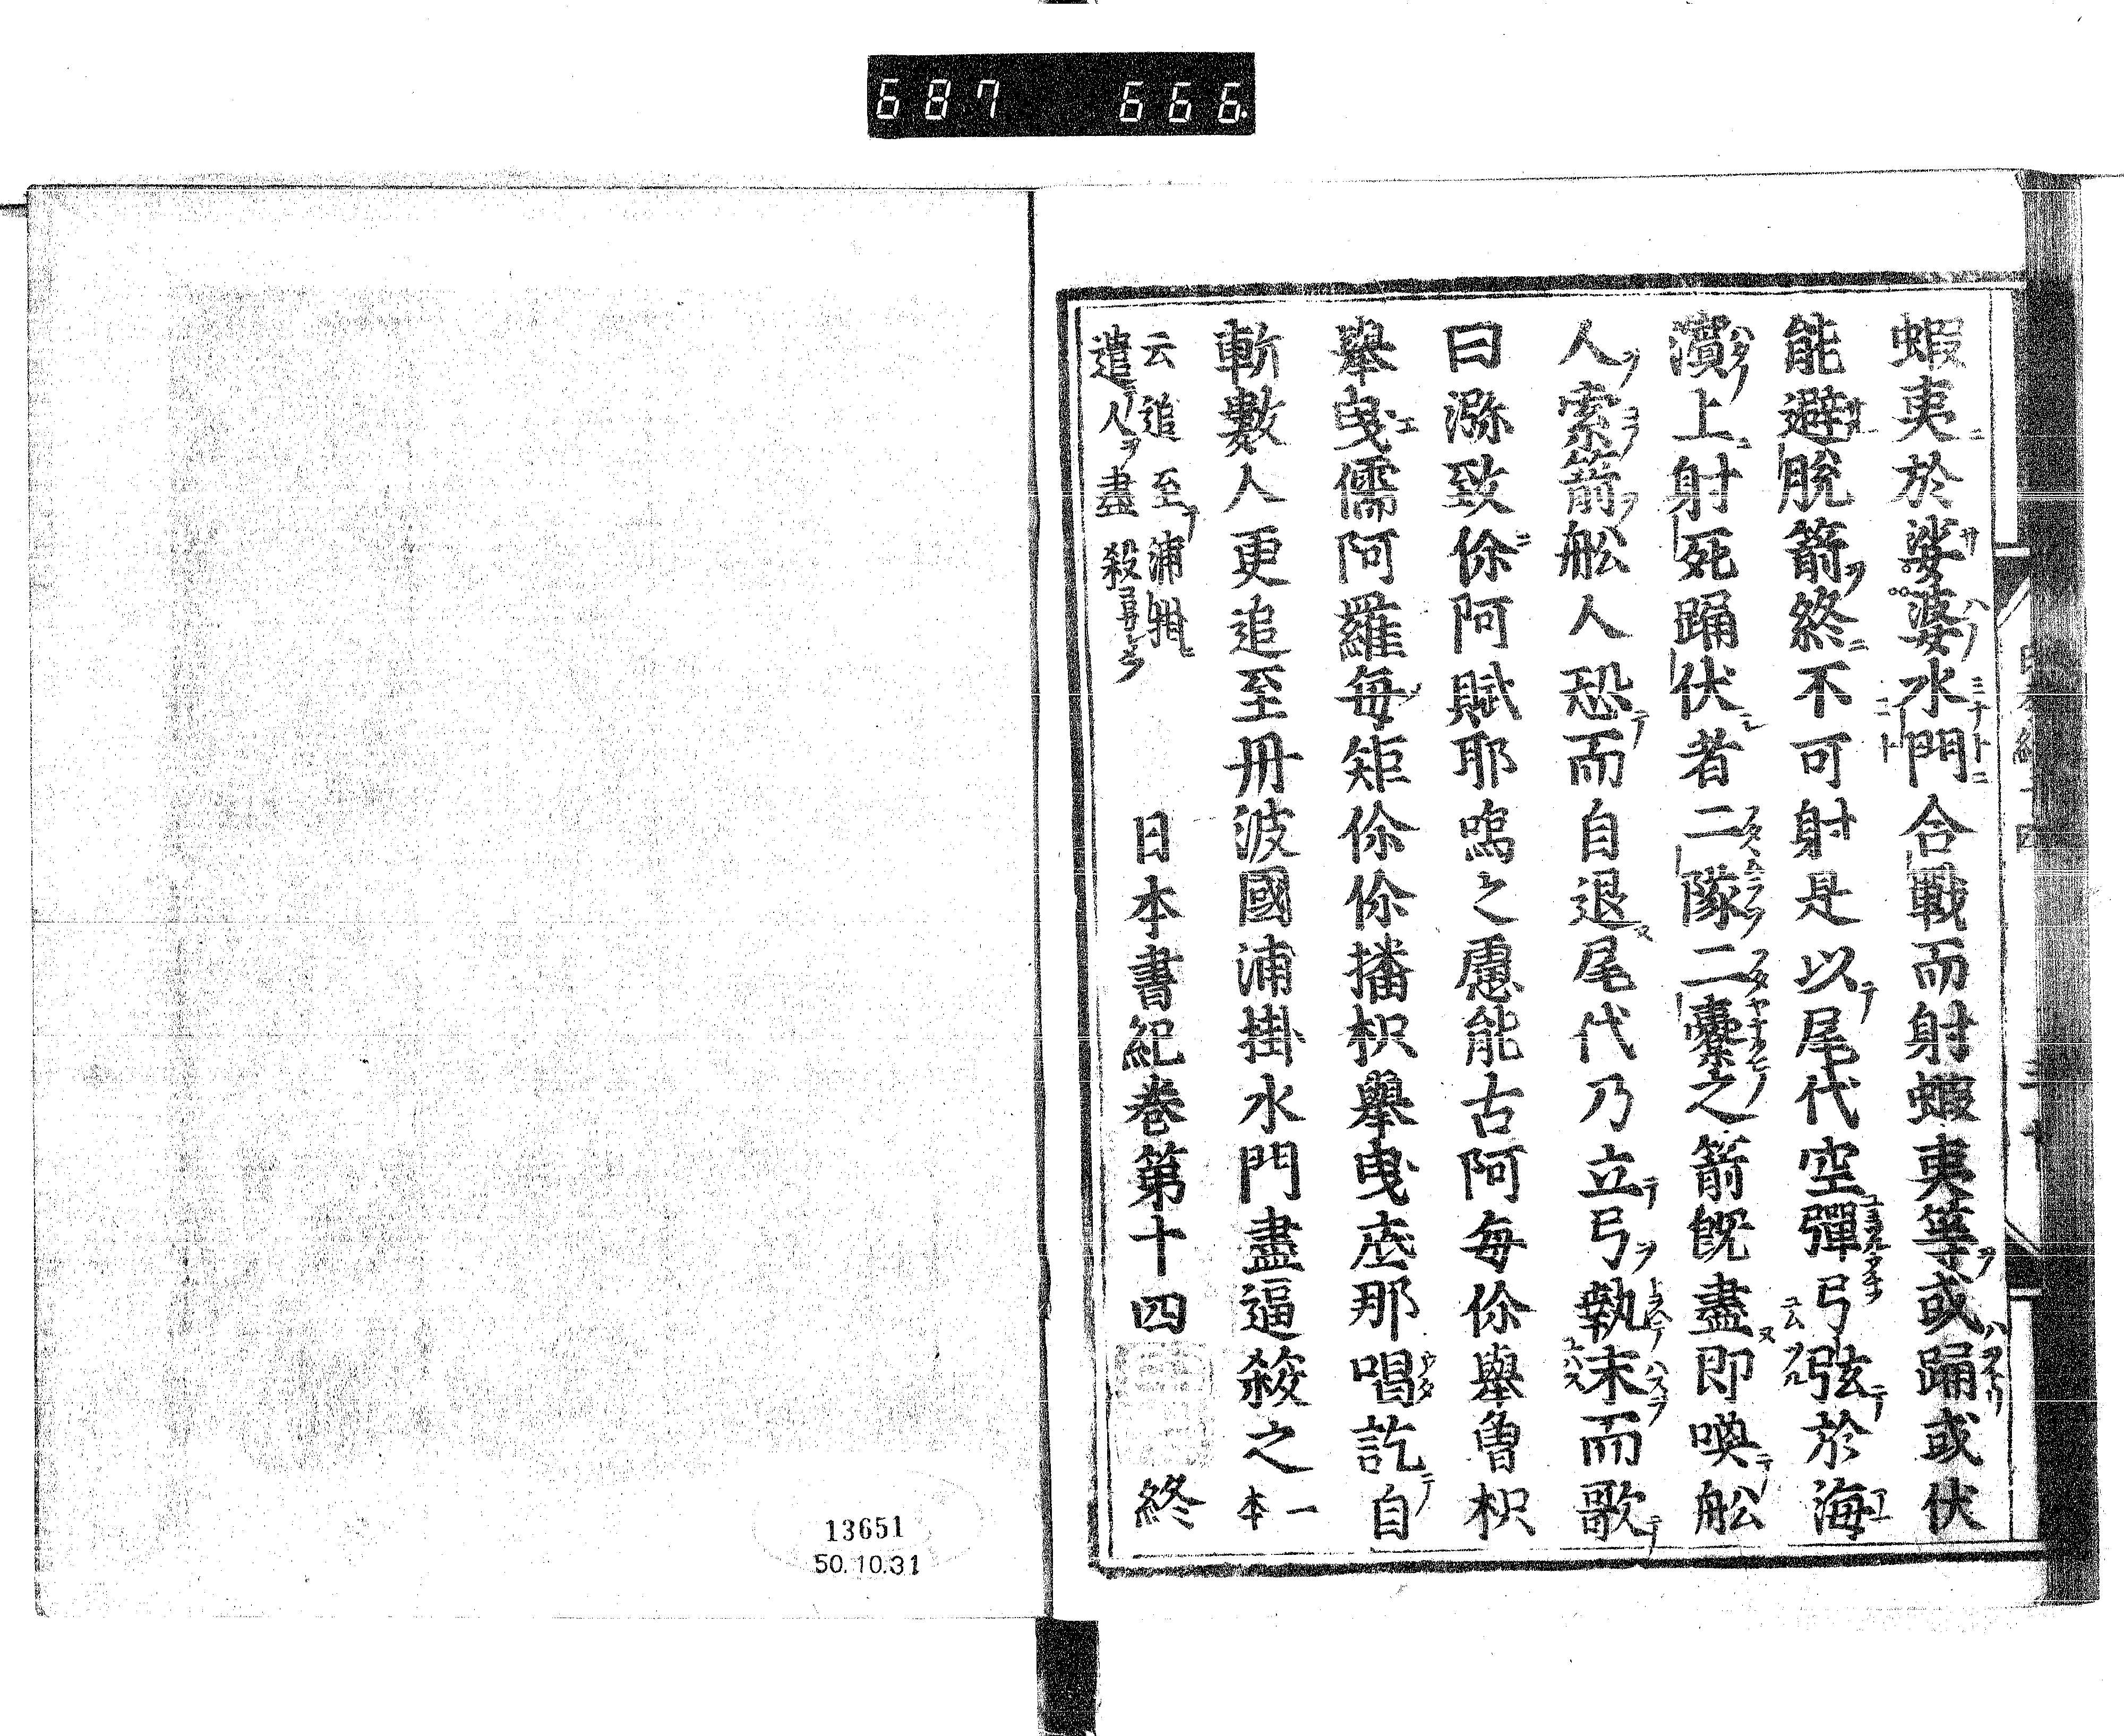 687 666.
蝦夷於娑婆水門合戰而射蝦夷等或踊或伏
能避脫箭終不可射是以尾代空彈弓弦於海
濱上射死踊伏者二隊二櫜之箭既盡即喚舩
人索箭舩人恐而自退尾代乃立弓執末而歌
曰瀰致你阿賦耶嗚之慮能古阿每你舉魯枳
舉曳儒阿羅每矩你你播枳舉曳底那唱訖自
斬數人更追至丹波國浦掛水門盡逼殺之一本
云追至浦掛
遣人盡殺
日本書紀卷第十四 終
13651
50.10.31